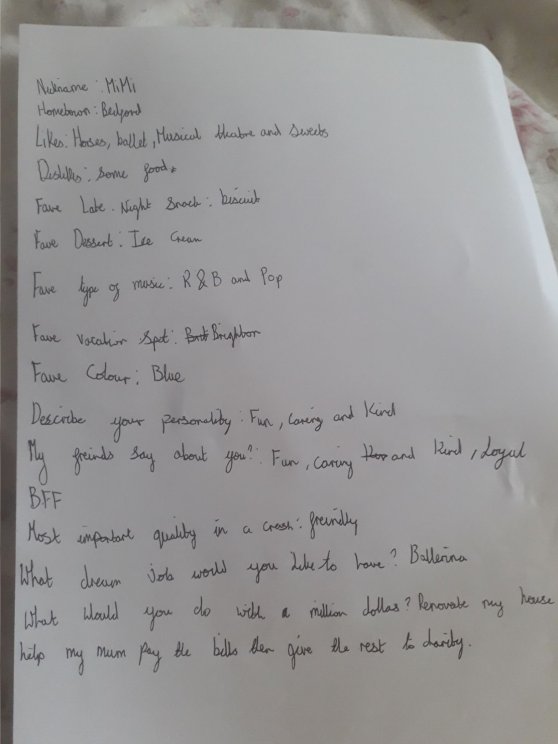 Nickname : MiMi
Hometown : Bedford
Likes : Horses, ballet, Musical theatre and Sweets
Dislikes : Some foods
Fave Late-Night Snack : biscuit
Fave Dessert : Ice Cream
Fave type of music : R & B and Pop
Fave vacation Spot : Brighton
Fave Colour : Blue
Describe your personality : Fun, caring and Kind
My freinds say about you? : Fun, caring and Kind, Loyal
BFF
Most important quality in a crush : freindly
What dream Job would you Like to have? Ballerina
What Would you do with a million dollas? Renovate my house
help my mum pay the bills then give the rest to charity.